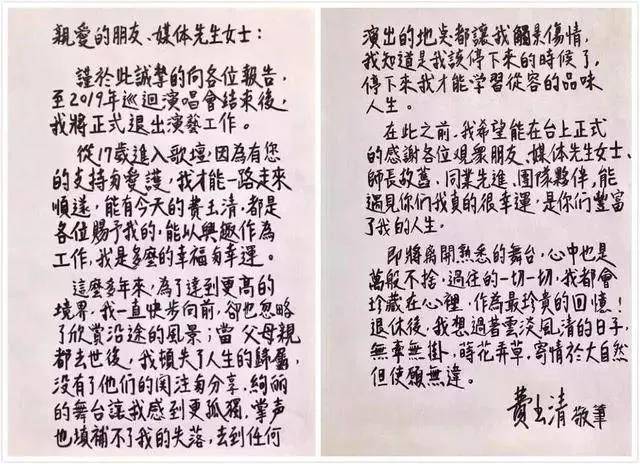 親愛的朋友、媒体先生女士：
謹於此誠摯的向各位報告，
至2019年巡迴演唱會結束後，
我將正式退出演藝工作。
從17歲進入歌壇，因為有您
的支持與愛護，我才能一路走來
順遂，能有今天的費玉清，都是
各位賜予我的，能以興趣作為
工作，我是多麼的幸福與幸運。
這麼多年來，為了達到更高的
境界，我一直快步向前，卻也忽略
了欣賞沿途的風景；當父母親
都去世後，我頓失了人生的歸屬，
没有了他們的関注與分享，絢麗
的舞台讓我感到更孤獨，掌声
也填補不了我的失落，去到任何
演出的地点都讓我觸景傷情，
我知道是我該停下來的時候了，
停下來我才能学習從容的品味
人生。
在此之前，我希望能在台上正式
的感謝各位观眾朋友、媒体先生女士、
師長故舊、同業先進、團隊夥伴，能
遇見你們我真的很幸運，是你們豐富
了我的人生。
即將离開熟悉的舞台，心中也是
萬般不捨，過往的一切一切，我都會
珍藏在心裡，作為最珍貴的回憶！
退休後，我想過著雲淡風清的日子，
無牽無掛，蒔花弄草，寄情於大自然
但使願無違。
費玉清 敬筆